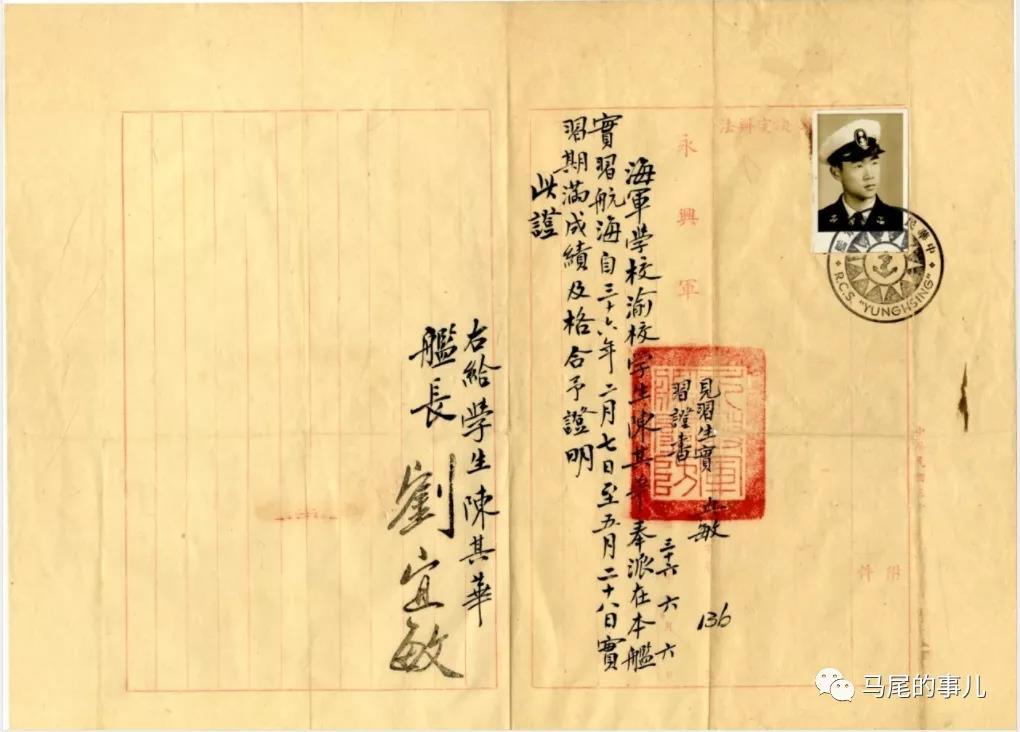 永興軍
見習生實
習證書
宜敏
三十六 六 六
136
海軍學校渝校學生陳其華奉派在本艦
實習航海自三十六年二月七日至五月二十八日實
習期滿成績及格合予證明
此證
右給學生陳其華
艦長 劉宜敏
決定辦法
附件
R.C.S. "YUNGHSING"
马尾的事儿